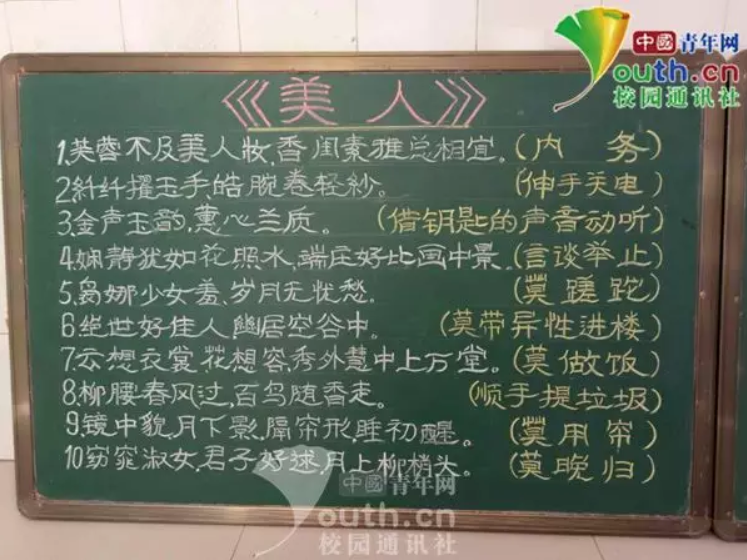 中國青年网
Youth.cn
校园通讯社
《美人》
1.芙蓉不及美人妆,香闺素雅总相宜。(内 务)
2.纤纤擢玉手皓腕卷轻纱。(伸手关电)
3.金声玉韵,蕙心兰质。(借钥匙的声音动听)
4.娴静犹如花照水,端庄好比画中景。(言谈举止)
5.袅娜少女羞,岁月无忧愁。(莫蹉跎)
6.绝世好佳人,幽居空谷中。(莫带异性进楼)
7.云想衣裳花想容,秀外慧中上万堂。(莫做饭)
8.柳腰春风过,百鸟随香走。(顺手提垃圾)
9.镜中貌,月下影,隔帘形,睡初醒。(莫用帘)
10.窈窕淑女,君子好逑,月上柳梢头。(莫晚归)
中國青年网
Youth.cn
校园通讯社